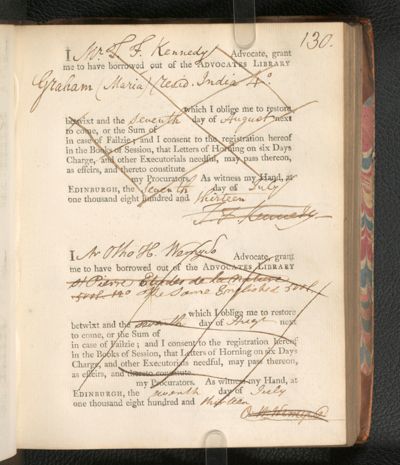 130.
I Mr. T. F. Kennedy Advocate, grant
me to have borrowed out of the ADVOCATES LIBRARY
Graham (Maria) India 4o.
which I oblige me to restore
betwixt and the seventh day of August next
to come, or the Sum of
in case of Failzie; and I consent to the registration hereof
in the Books of Session, that Letters of Horning on six Days
Charge, and other Executorials needful, may pass thereon,
as effeirs, and thereto constitute
my Procurators. As witness my Hand, at
EDINBURGH, the seventh day of July
one thousand eight hundred and thirteen
T. F. Kennedy
I Mr Otho H. Advocate, grant
me to have borrowed out of the ADVOCATES LIBRARY
St Pierre Etudes de la Nature
The Same Englished 5 vol
which I oblige me to restore
betwixt and the seventh day of Augt next
to come, or the Sum of
in case of Failzie; and I consent to the registration hereof
in the Books of Session, that Letters of Horning on six Days
Charge, and other Executorials needful, may pass thereon,
as effeirs, and thereto constitute
my Procurators. As witness my Hand, at
EDINBURGH, the seventh day of July
one thousand eight hundred and thirteen